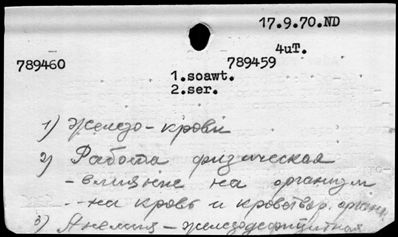 17.9.70.ND
4иТ.
789460 789459
1.soawt.
2.ser.
1) Железо - крови
2) Работа физическая
- влияние на организм
- на кровь и кроветвор. органы
3) Анемия - железодефицитная